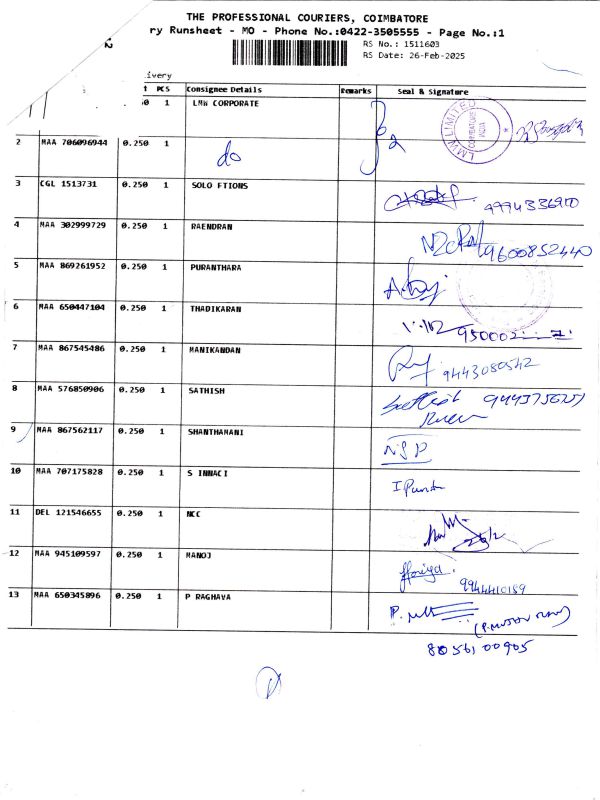 THE PROFESSIONAL COURIERS, COIMBATORE
ry Runsheet - MO - Phone No.:0422-3505555 - Page No.:1
RS No.: 1511603
RS Date: 26-Feb-2025
ivery
t PCS Consignee Details Remarks Seal & Signature
0 1 LMW CORPORATE
LMW LIMITED COIMBATORE INDIA
2 MAA 706096944 0.250 1 do
3 CGL 1513731 0.250 1 SOLO FTIONS
4 MAA 302999729 0.250 1 RAENDRAN 9600852440
5 MAA 869261952 0.250 1 PURANTHARA
6 MAA 650447104 0.250 1 THADIKARAN
7 MAA 867545486 0.250 1 MANIKANDAN 9443080542
8 MAA 576850906 0.250 1 SATHISH
9 MAA 867562117 0.250 1 SHANTHAMANI
10 MAA 707175828 0.250 1 S INNACI
11 DEL 121546655 0.250 1 NCC 26/2
12 MAA 945109597 0.250 1 MANOJ 9944410189
13 MAA 650345896 0.250 1 P RAGHAVA
8056100905